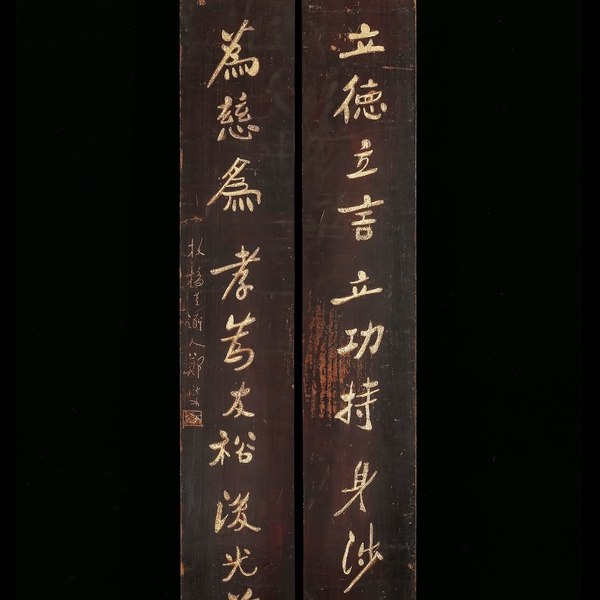 立德立言立功持身涉
為慈為孝為友裕後光
板橋道人鄭燮